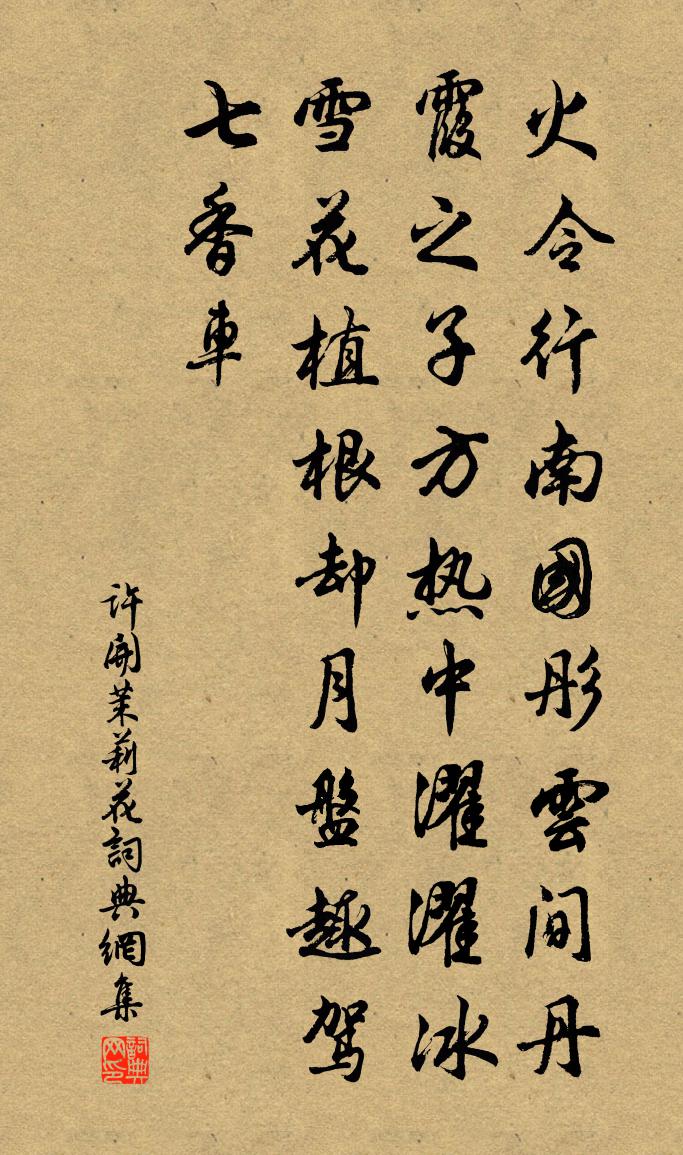 火令行南國彤雲間丹
霞之子方热中濯濯冰
雪花植根却月盤趣駕
七香車
许開茉莉花詞典網集
詞典网印